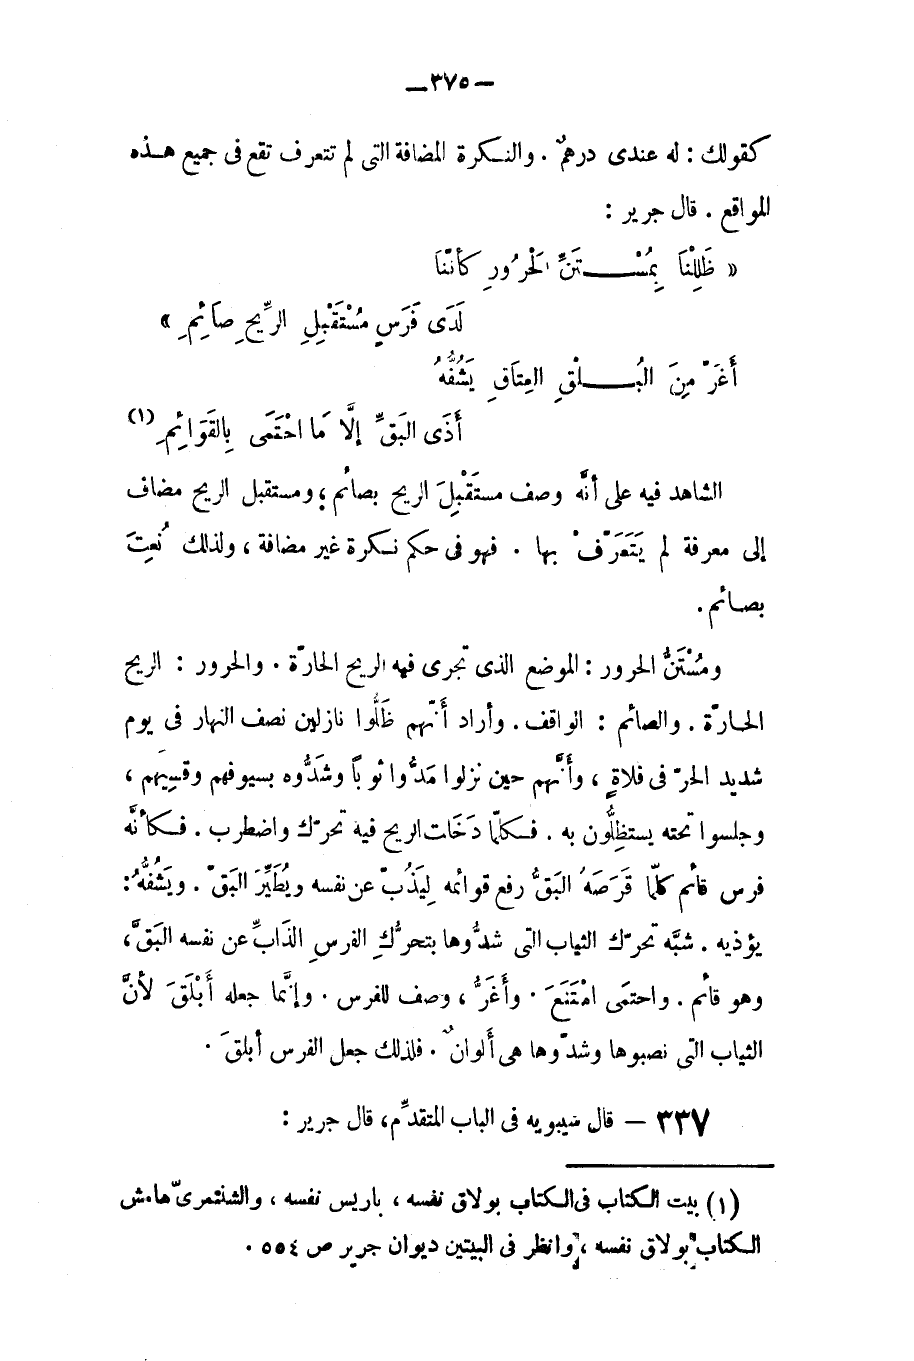 — ٣٧٥ —
كقولك : له عندى درهمٌ . والنكرة المضافة التى لم تتعرف تقع فى جميع هذه
المواقع . قال جرير :
« ظَلِلْنَا بِمُسْتَنِّ الحَرُورِ كأنّنَا
لَدَى فَرَسٍ مُسْتَقْبِلِ الرِّيحِ صَائِمِ »
أَغَرّ مِنَ البُلْقِ العِتَاقِ يَشُفُّهُ
أَذَى البَقِّ إلَّا مَا احْتَمَى بِالقَوَائِمِ (١)
الشاهد فيه على أنَّه وصف مستَقْبِلَ الريح بصائم ؛ ومستقبل الريح مضاف
إلى معرفة لم يَتَعَرّفْ بها . فهو فى حكم نكرة غير مضافة ، ولذلك نُعِتَ
بصائم .
ومُسْتَنُّ الحرور : الموضع الذى تجرى فيه الريح الحارّة . والحرور : الريح
الحارّة . والصائم : الواقف . وأراد أَنّهم ظَلُّوا نازلين نصف النهار فى يوم
شديد الحرّ فى فلاةٍ ، وأنَّهم حين نزلوا مَدُّوا ثوباً وشَدُّوه بسيوفهم وقسِيِّهم ،
وجلسوا تحته يستظِلُّون به . فكلمّا دَخَلت الريح فيه تحرّك واضطرب . فكأنَّه
فرس قائم كلّما قَرَصَهُ البَقُّ رفع قوائمه لِيَذُبّ عن نفسه ويُطَيِّرَ البَقّ . ويَشُفُّهُ :
يؤذيه . شبَّه تحرّك الثياب التى شدُّوها بتحرُّكِ الفرسِ الذَابِّ عن نفسه البَقَّ ،
وهو قائم . واحتمَى امْتَنَعَ . وأَغَرُّ ، وصف للفرس . وإنَّما جعله أَبْلَقَ لأنَّ
الثياب التى نصبوها وشدّوها هى أَلوانٌ . فلذلك جعل الفرس أبلقَ .
٣٣٧ — قال سيبويه فى الباب المتقدِّم ، قال جرير :
(١) بيت الكتاب فى الكتاب بولاق نفسه ، باريس نفسه ، والشنتمرىّ هامش
الكتاب بولاق نفسه ، وانظر فى البيتين ديوان جرير ص ٥٥٤ .